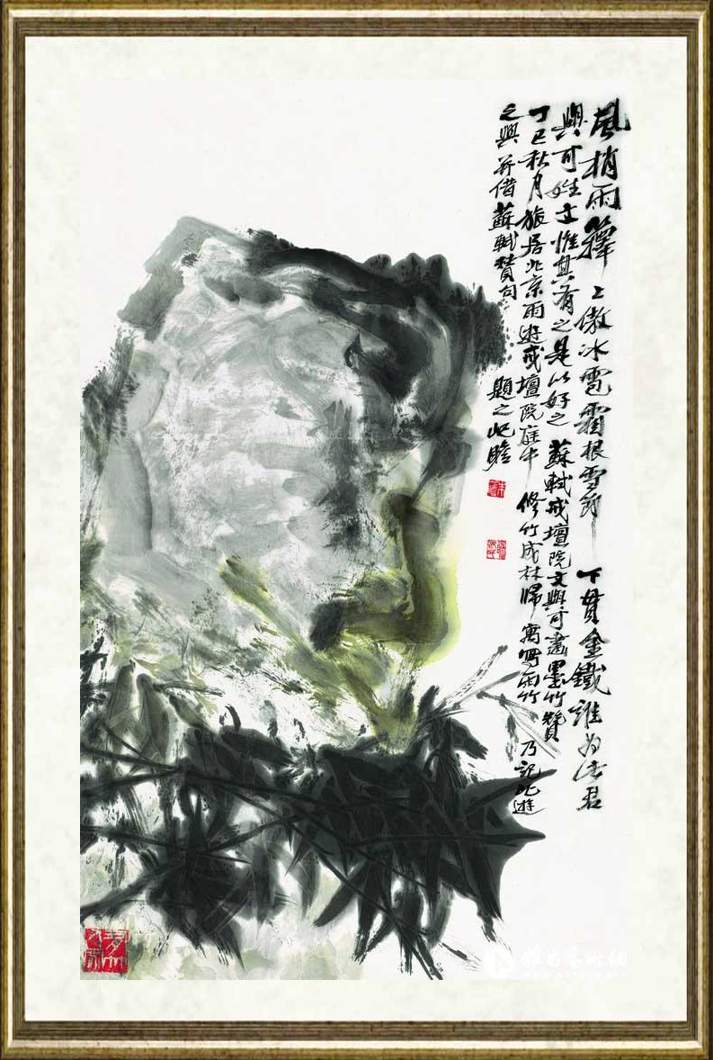 風梢雨籜上傲冰雹霜根雪節下貫金鐵誰为此君
與可姓文惟其有之是以好之蘇軾戒壇院文與可畫墨竹贊
丁巳秋月旅居北京雨遊戒壇院庭中修竹成林歸寓寫雨竹乃記此遊
之興并借蘇軾贊句題之屺瞻